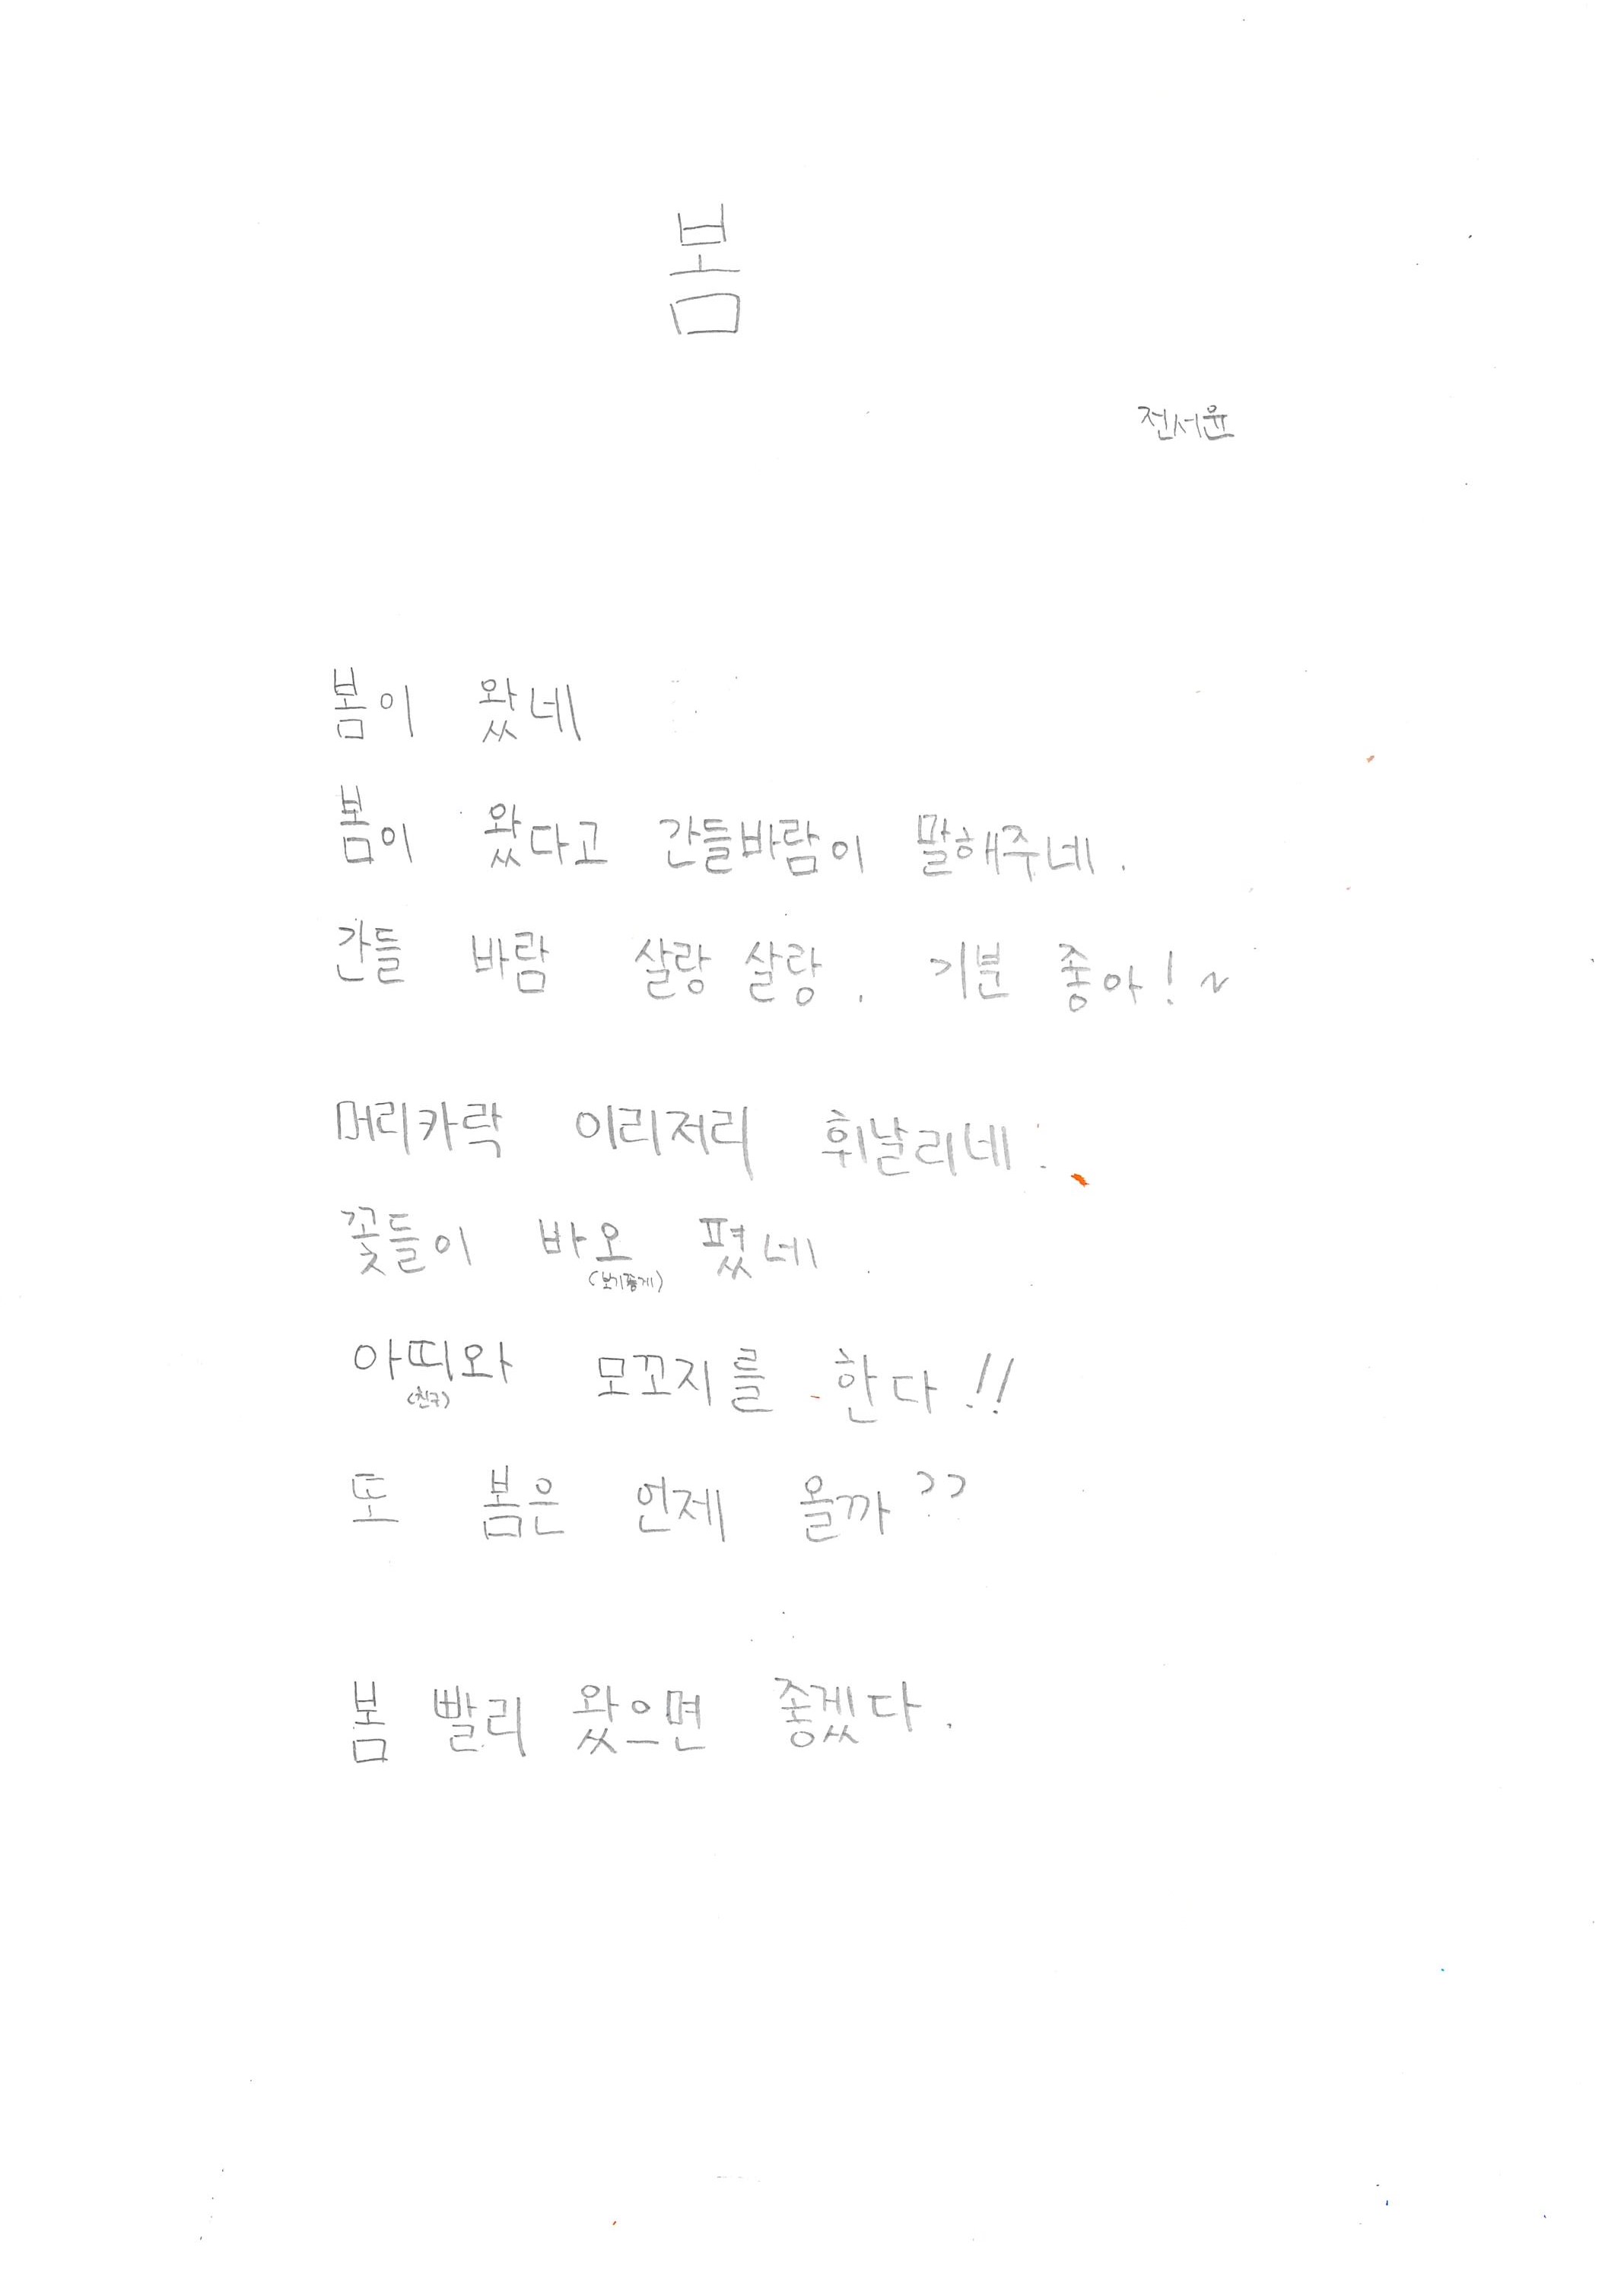 봄
전서윤
봄이 왔네
봄이 왔다고 간들바람이 말해주네.
간들 바람 살랑 살랑. 기분 좋아!~
머리카락 이리저리 휘날리네.
꽃들이 바오 폈네
(보기좋게)
아띠와 모꼬지를 한다!!
(친구)
또 봄은 언제 올까??
봄 빨리 왔으면 좋겠다.